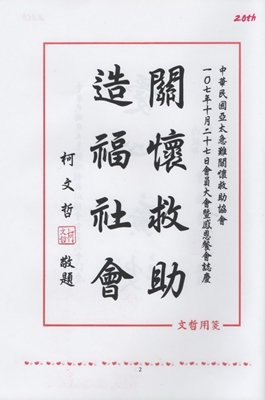 20th
中華民國亞太急難關懷救助協會
一〇七年十月二十七日會員大會暨感恩餐會誌慶
關懷救助
造福社會
柯文哲
敬題
文哲用箋
2